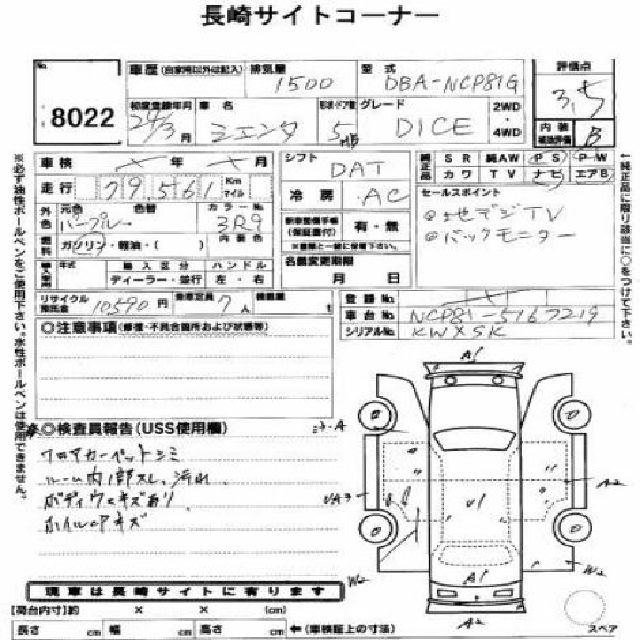 長崎サイトコーナー
No. 8022
車歴 (自家用以外は記入) 排気量 1500 型式 DBA-NCP81G 評価点 3.5
初度登録年月 24/3月 車名 シエンタ 形状・ドア数 5 グレード DICE 2WD・4WD 内装補助評価 B
車検 年 月 シフト DAT 純正品 SR 純AW PS PW
カワ TV ナビ エアB
走行 79,561 Km マイル 冷房 AC セールスポイント
外色 元色 パープル 色替 カラーNo. 3R9 新車整備手帳(保証書付) 有・無 ※書類と一緒に保管下さい。 ◎地デジTV
◎バックモニター
燃料 ガソリン・軽油・( ) 内装色 名義変更期限 月 日
輸入車用 年式 輸入区分 ディーラー・並行 ハンドル 左・右
リサイクル預託金 10590円 乗車定員 7人 積載量 t
登録No.
車台No. NCP81-5167219
シリアルNo. KWXSK
◎注意事項(修復・不具合箇所および状態等)
◎検査員報告(USS使用欄)
フロアカーペットシミ
ルーム内1部スレ、汚れ
ボディウスキズあり
ホイルCPキズ
A1
UA3
U1
A2
W2
W2
A1
A2
スペア
現車は長崎サイトに有ります
【荷台内寸法】 約 × × (cm)
長さ cm 幅 cm 高さ cm ←(車検証上の寸法)
※必ず油性ボールペンをご使用下さい。水性ボールペンは使用できません。
↑純正品に限り該当に○をつけて下さい。